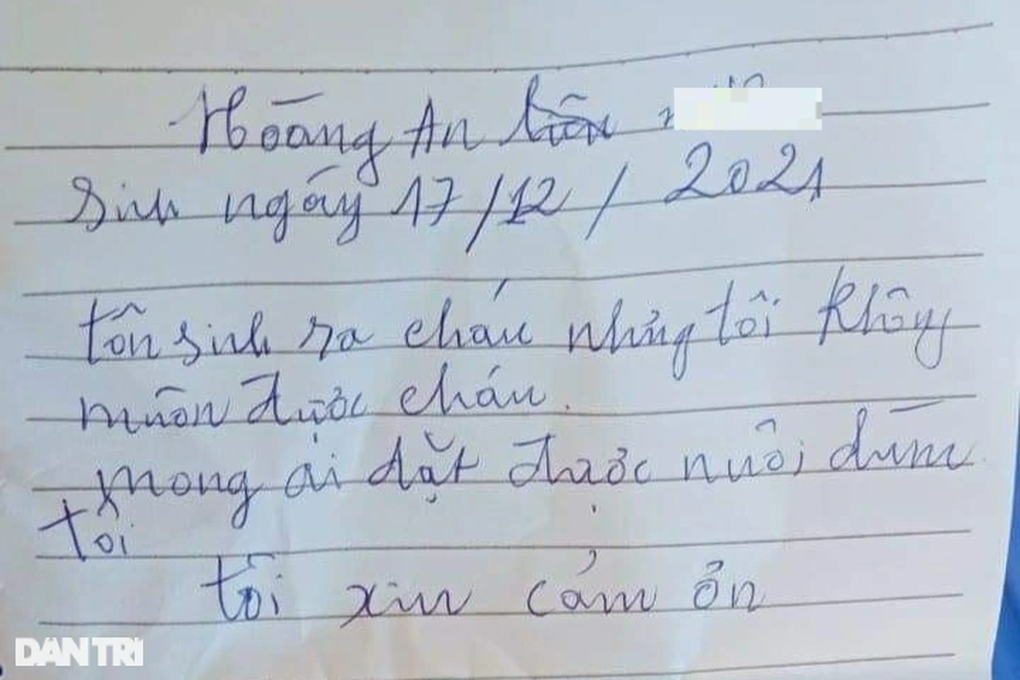 Hoàng An
Sinh ngáy 17/12/2021
tôn sinh ra cháu nhưng tôi không
muôn được cháu.
mong ai dặt được nuôi dùm
tôi
tôi xin cảm ởn
DÂN TRÍ